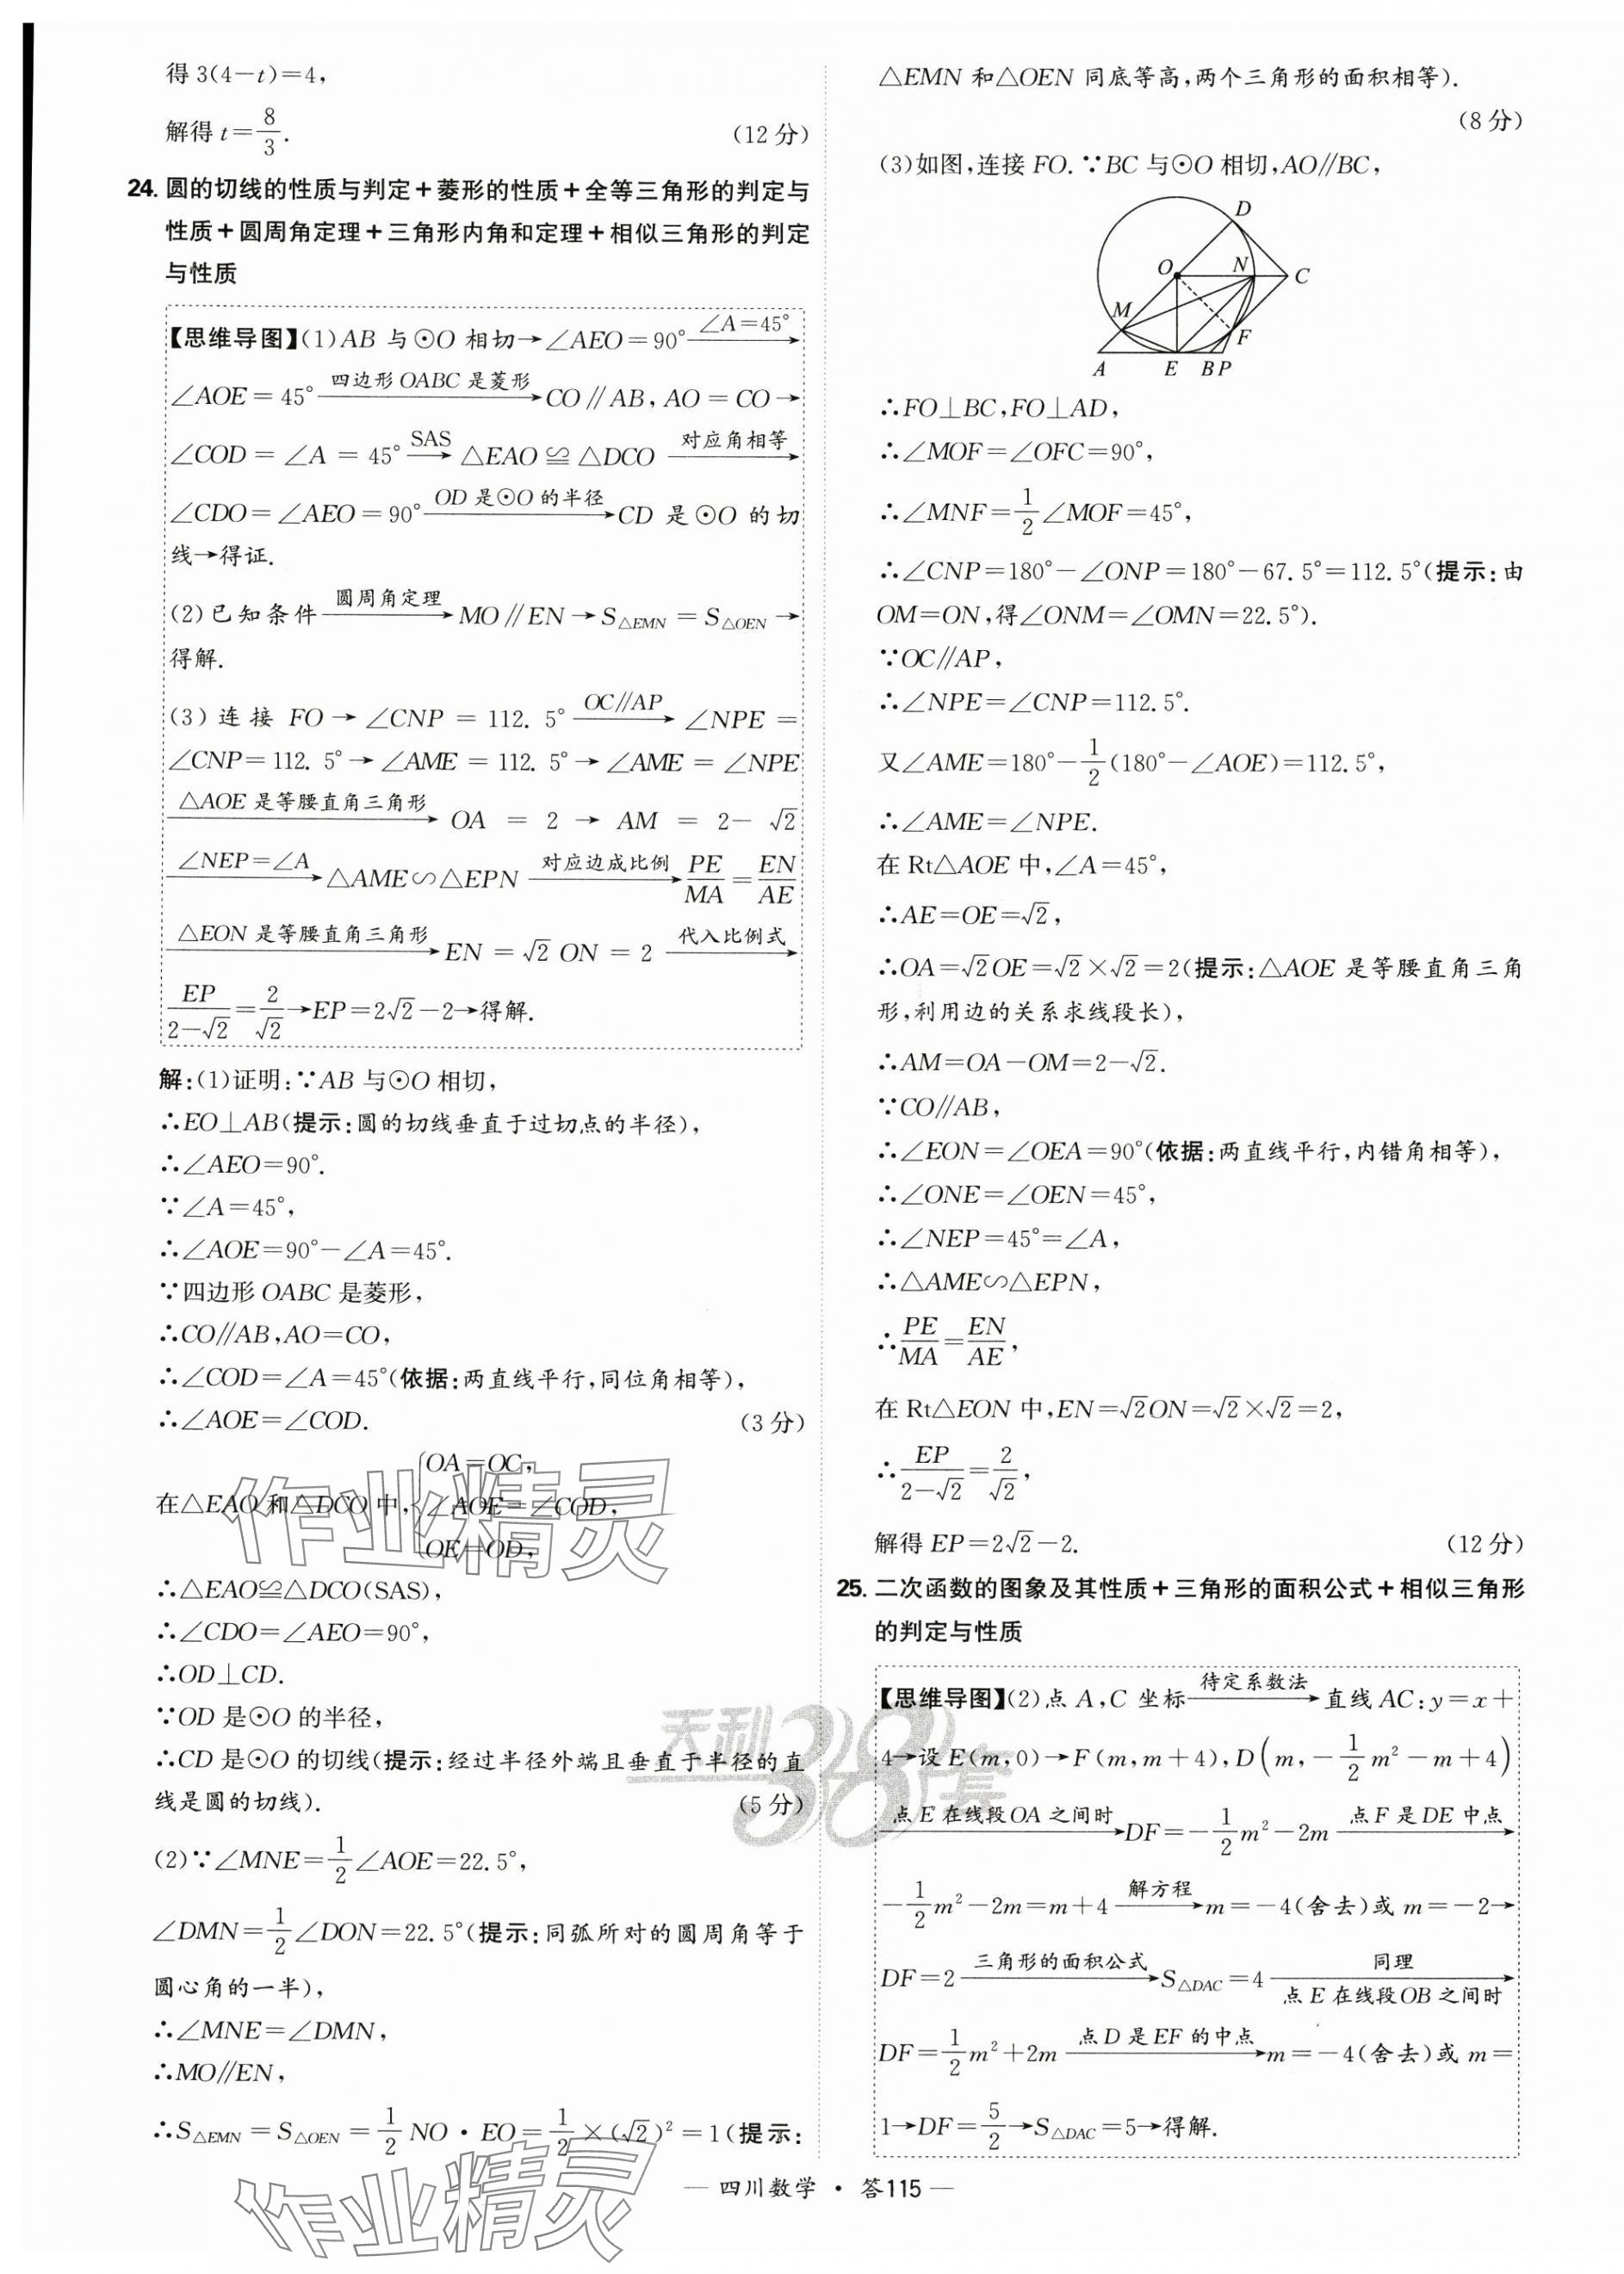 得 3(4－t)＝4，
解得 t＝8/3．　(12 分)
24. 圆的切线的性质与判定＋菱形的性质＋全等三角形的判定与
性质＋圆周角定理＋三角形内角和定理＋相似三角形的判定
与性质
【思维导图】(1)AB 与⊙O 相切→∠AEO＝90° ∠A＝45°→
∠AOE＝45° 四边形 OABC 是菱形→CO∥AB，AO＝CO→
∠COD＝∠A＝45° SAS→△EAO≌△DCO 对应角相等→
∠CDO＝∠AEO＝90° OD 是⊙O 的半径→CD 是⊙O 的切
线→得证．
(2)已知条件 圆周角定理→MO∥EN→S△EMN＝S△OEN→
得解．
(3)连接 FO→∠CNP＝112.5° OC∥AP→∠NPE＝
∠CNP＝112.5°→∠AME＝112.5°→∠AME＝∠NPE
△AOE 是等腰直角三角形→OA＝2→AM＝2－√2
∠NEP＝∠A→△AME∽△EPN 对应边成比例→PE/MA＝EN/AE
△EON 是等腰直角三角形→EN＝√2 ON＝2 代入比例式→
EP/(2－√2)＝2/√2→EP＝2√2－2→得解．
解：(1)证明：∵AB 与⊙O 相切，
∴EO⊥AB(提示：圆的切线垂直于过切点的半径)，
∴∠AEO＝90°．
∵∠A＝45°，
∴∠AOE＝90°－∠A＝45°．
∵四边形 OABC 是菱形，
∴CO∥AB，AO＝CO，
∴∠COD＝∠A＝45°(依据：两直线平行，同位角相等)，
∴∠AOE＝∠COD．　(3 分)
OA＝OC，
在△EAO 和△DCO 中，{∠AOE＝∠COD，
OE＝OD，
∴△EAO≌△DCO(SAS)，
∴∠CDO＝∠AEO＝90°，
∴OD⊥CD．
∵OD 是⊙O 的半径，
∴CD 是⊙O 的切线(提示：经过半径外端且垂直于半径的直
线是圆的切线)．　(5 分)
(2)∵∠MNE＝1/2∠AOE＝22.5°，
∠DMN＝1/2∠DON＝22.5°(提示：同弧所对的圆周角等于
圆心角的一半)，
∴∠MNE＝∠DMN，
∴MO∥EN，
∴S△EMN＝S△OEN＝1/2 NO·EO＝1/2×(√2)²＝1(提示：
△EMN 和△OEN 同底等高，两个三角形的面积相等)．
(8 分)
(3)如图，连接 FO．∵BC 与⊙O 相切，AO∥BC，
D
O
N
C
M
F
A E B P
∴FO⊥BC，FO⊥AD，
∴∠MOF＝∠OFC＝90°，
∴∠MNF＝1/2∠MOF＝45°，
∴∠CNP＝180°－∠ONP＝180°－67.5°＝112.5°(提示：由
OM＝ON，得∠ONM＝∠OMN＝22.5°)．
∵OC∥AP，
∴∠NPE＝∠CNP＝112.5°．
又∠AME＝180°－1/2(180°－∠AOE)＝112.5°，
∴∠AME＝∠NPE．
在 Rt△AOE 中，∠A＝45°，
∴AE＝OE＝√2，
∴OA＝√2OE＝√2×√2＝2(提示：△AOE 是等腰直角三角
形，利用边的关系求线段长)，
∴AM＝OA－OM＝2－√2．
∵CO∥AB，
∴∠EON＝∠OEA＝90°(依据：两直线平行，内错角相等)，
∴∠ONE＝∠OEN＝45°，
∴∠NEP＝45°＝∠A，
∴△AME∽△EPN，
∴PE/MA＝EN/AE，
在 Rt△EON 中，EN＝√2ON＝√2×√2＝2，
∴EP/(2－√2)＝2/√2，
解得 EP＝2√2－2．　(12 分)
25. 二次函数的图象及其性质＋三角形的面积公式＋相似三角形
的判定与性质
【思维导图】(2)点 A，C 坐标 待定系数法→直线 AC：y＝x＋
4→设 E(m，0)→F(m，m＋4)，D(m，－1/2m²－m＋4)
点 E 在线段OA 之间时→DF＝－1/2m²－2m 点 F 是 DE 中点→
－1/2m²－2m＝m＋4 解方程→m＝－4(舍去)或 m＝－2→
DF＝2 三角形的面积公式→S△DAC＝4 同理 点 E 在线段OB 之间时→
DF＝1/2m²＋2m 点 D 是 EF 的中点→m＝－4(舍去)或 m＝
1→DF＝5/2→S△DAC＝5→得解．
— 四川数学 · 答115 —
作业精灵
天利38套
作业精灵